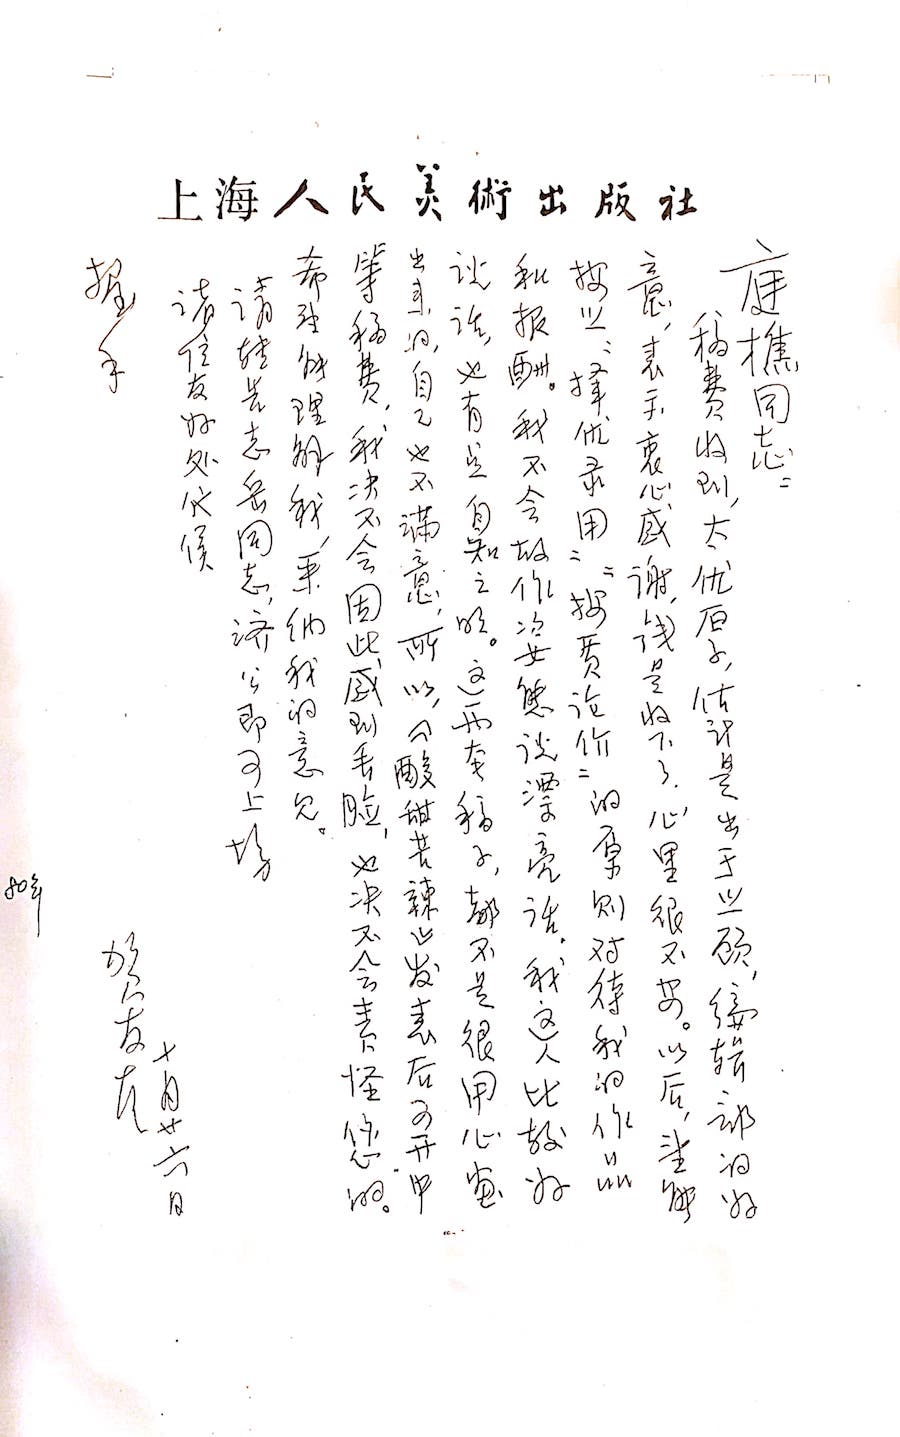 上海人民美術出版社
庭樵同志：
稿费收到，太优厚了，估计是出于照顾，编辑部的好
意，表示衷心感谢，钱是收下了，心里很不安。以后，望能
按照“择优录用”“按质论价”的原则对待我的作品
和报酬。我不会故作姿态说漂亮话。我这人比较好
说话，也有点自知之明。这两本稿子，都不是很用心画
出来的，自己也不满意，所以，《酸甜苦辣》发表后可开中
等稿费，我决不会因此感到丢脸，也决不会责怪您的。
希望能理解我，采纳我的意见。
请转告志岳同志，济公即可上场
诸位友好处代候
握手
贺友直
十月廿六日
80年